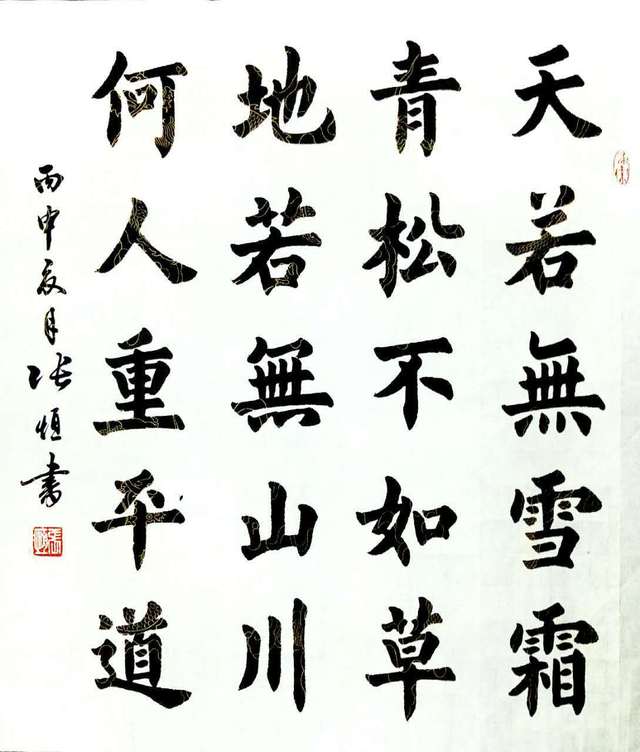 天若無雪霜
青松不如草
地若無山川
何人重平道
丙申夏月张恒書